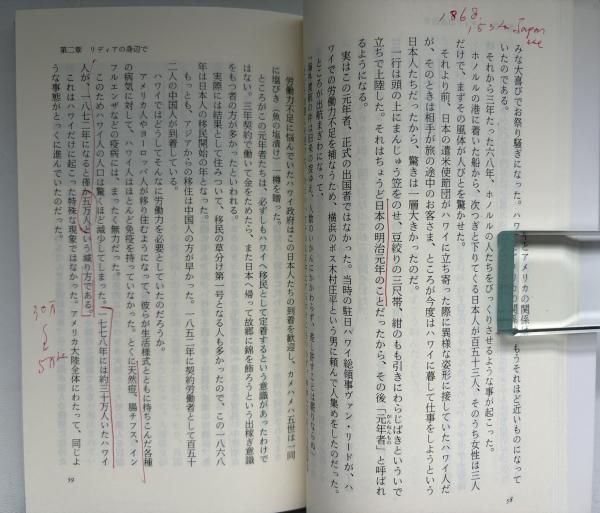 1868.
みな大喜びでお祭り騒ぎになった。ハワイとアメリカの関係は、もうそれほど近いものになって
いたのである。
それから三年たった六八年、ホノルルの人たちをびっくりさせるような事が起こった。
ホノルルの港に着いた船から、次つぎと下りてくる日本人が百五十三人、そのうち女性は三人
だけで、まずその風体が人びとを驚かせた。
それより前、日本の遣米使節団がハワイに立ち寄った際に異様な姿形に接していたハワイ人だ
が、そのときは相手が旅の途中のお客さま、ところが今度はハワイに暮して仕事をしようという
日本人たちだったから、驚きは一層大きかったのだ。
一行は頭の上にまんじゅう笠をのせ、豆絞りの三尺帯、紺のもも引きにわらじばきといういで
立ちで上陸した。それはちょうど日本の明治元年のことだったから、その後「元年者」と呼ばれ
がんねんもの
るようになる。
実はこの元年者、正式の出国者ではなかった。当時の駐日ハワイ総領事ヴァン・リードが、ハ
ワイでの労働力不足を補なうため、横浜のボス木村庄平という男に頼んで人集めをしたのだった。
ところが出航まぎわになって、
58
第二章 リディアの身辺で
労働力不足に悩んでいたハワイ政府はこの日本人たちの到着を歓迎し、カメハメハ五世は一同
に塩びき(魚の塩漬け)一樽を贈った。
ところがこの元年者たちは、必ずしもハワイへ移民として定着するという意識があったわけで
はない。三年契約で働いて金をためたら、また日本へ帰って故郷に錦を飾ろうという出稼ぎ意識
をもつ者の方が多かったといわれる。
実際には結果として住みついて、移民の草分け第一号となる人も多かったので、この一八六八
年は日本人の移民開始の年となった。
もっとも、アジアからの移住は中国人の方が早かった。一八五二年に契約労働者として百五十
二人の中国人が到着している。
ハワイではどうしてそんなに労働力を必要としていたのだろうか。
アメリカ人やヨーロッパ人が移り住むようになって、彼らが生活様式とともに持ちこんだ各種
の病気に対して、ハワイ人はほとんど免疫を持っていなかった。とくに天然痘、腸チフス、イン
フルエンザなどの疫病には、まったく無力だった。
このためハワイ人の人口は驚くほど減少してしまった。一七七八年には約三十万人いたハワイ
人が、一八七二年になると僅か五万人という減り方である。
これはハワイだけに起こった特殊な現象ではなかった。アメリカ大陸全体にわたって、同じよ
うな事態がとっくに進んでいたのだった。
30万
5万
59